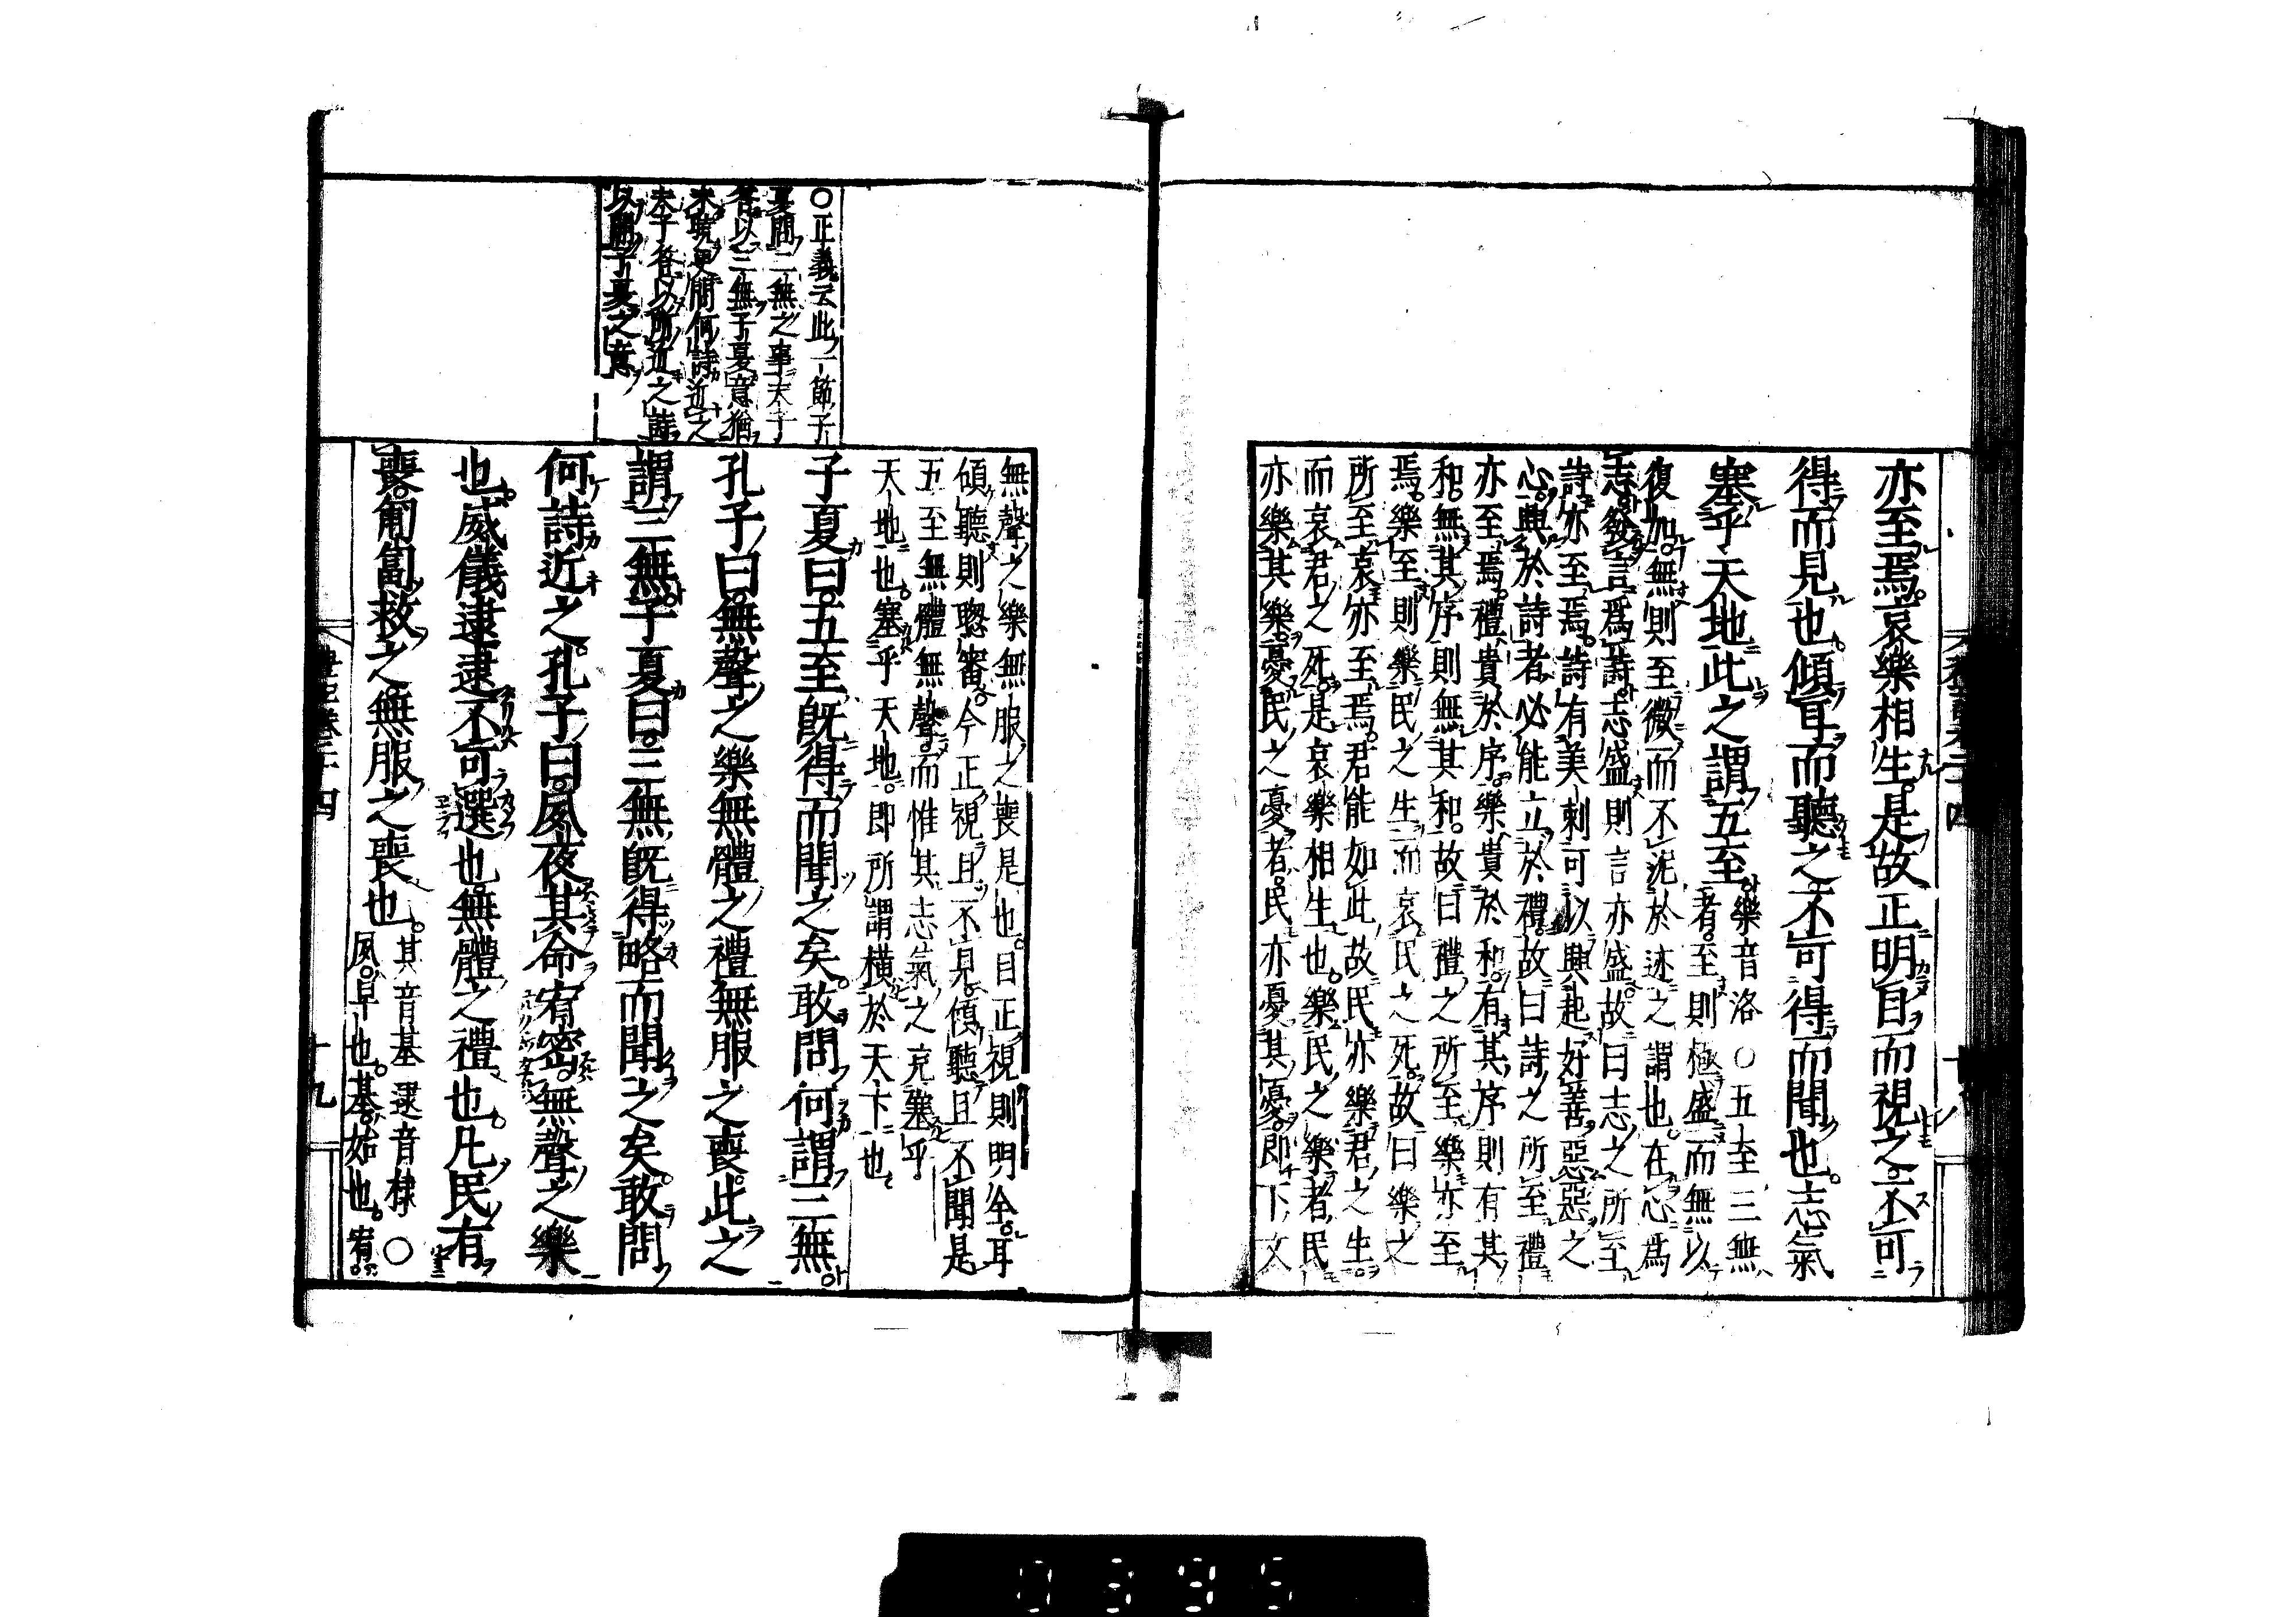 亦至焉哀樂相生是故正明目而視之不可
得而見也傾耳而聽之不可得而聞也志氣
塞乎天地此之謂五至
樂音洛○五至三無
者至則極盛而無以
復加無則至微而不泥於迹之謂也在心爲
志發言爲詩志盛則言亦盛故曰志之所至
詩亦至焉詩有美刺可以興起好善惡惡之
心興於詩者必能立於禮故曰詩之所至禮
亦至焉禮貴於序樂貴於和有其序則有其
和無其序則無其和故曰禮之所至樂亦至
焉樂至則樂民之生而哀民之死故曰樂之
所至哀亦至焉君能如此故民亦樂君之生
而哀君之死是哀樂相生也樂民之樂者民
亦樂其樂憂民之憂者民亦憂其憂即下文
無聲之樂無服之喪是也目正視則明全耳
傾聽則聰審今正視且不見傾聽且不聞是
五至無體無聲而惟其志氣之充塞乎
天地也塞乎天地即所謂横於天下也
○正義云此一節子
夏問三無之事夫子
答以三無子夏意猶
未曉更問何詩近之
夫子答以所近之詩
以開子夏之意
子夏曰五至既得而聞之矣敢問何謂三無
孔子曰無聲之樂無體之禮無服之喪此之
謂三無子夏曰三無既得略而聞之矣敢問
何詩近之孔子曰夙夜其命宥密無聲之樂
也威儀逮逮不可選也無體之禮也凡民有
喪匍匐救之無服之喪也
其音基逮音棣○
夙早也基始也宥
十九
0395